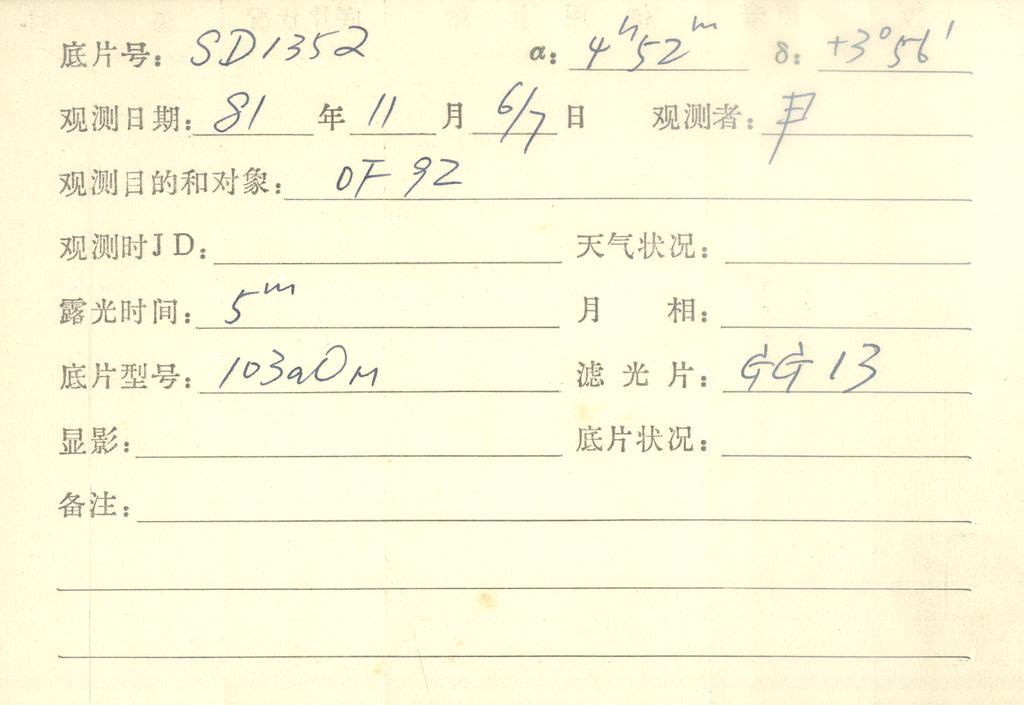 底片号: SD1352 α: 4ʰ52ᵐ δ: +3°56′
观测日期: 81 年 11 月 6/7 日 观测者: 尹
观测目的和对象: OF 92
观测时JD: 天气状况:
露光时间: 5ᵐ 月 相:
底片型号: 103aO 滤光片: GG 13
显影: 底片状况:
备注: